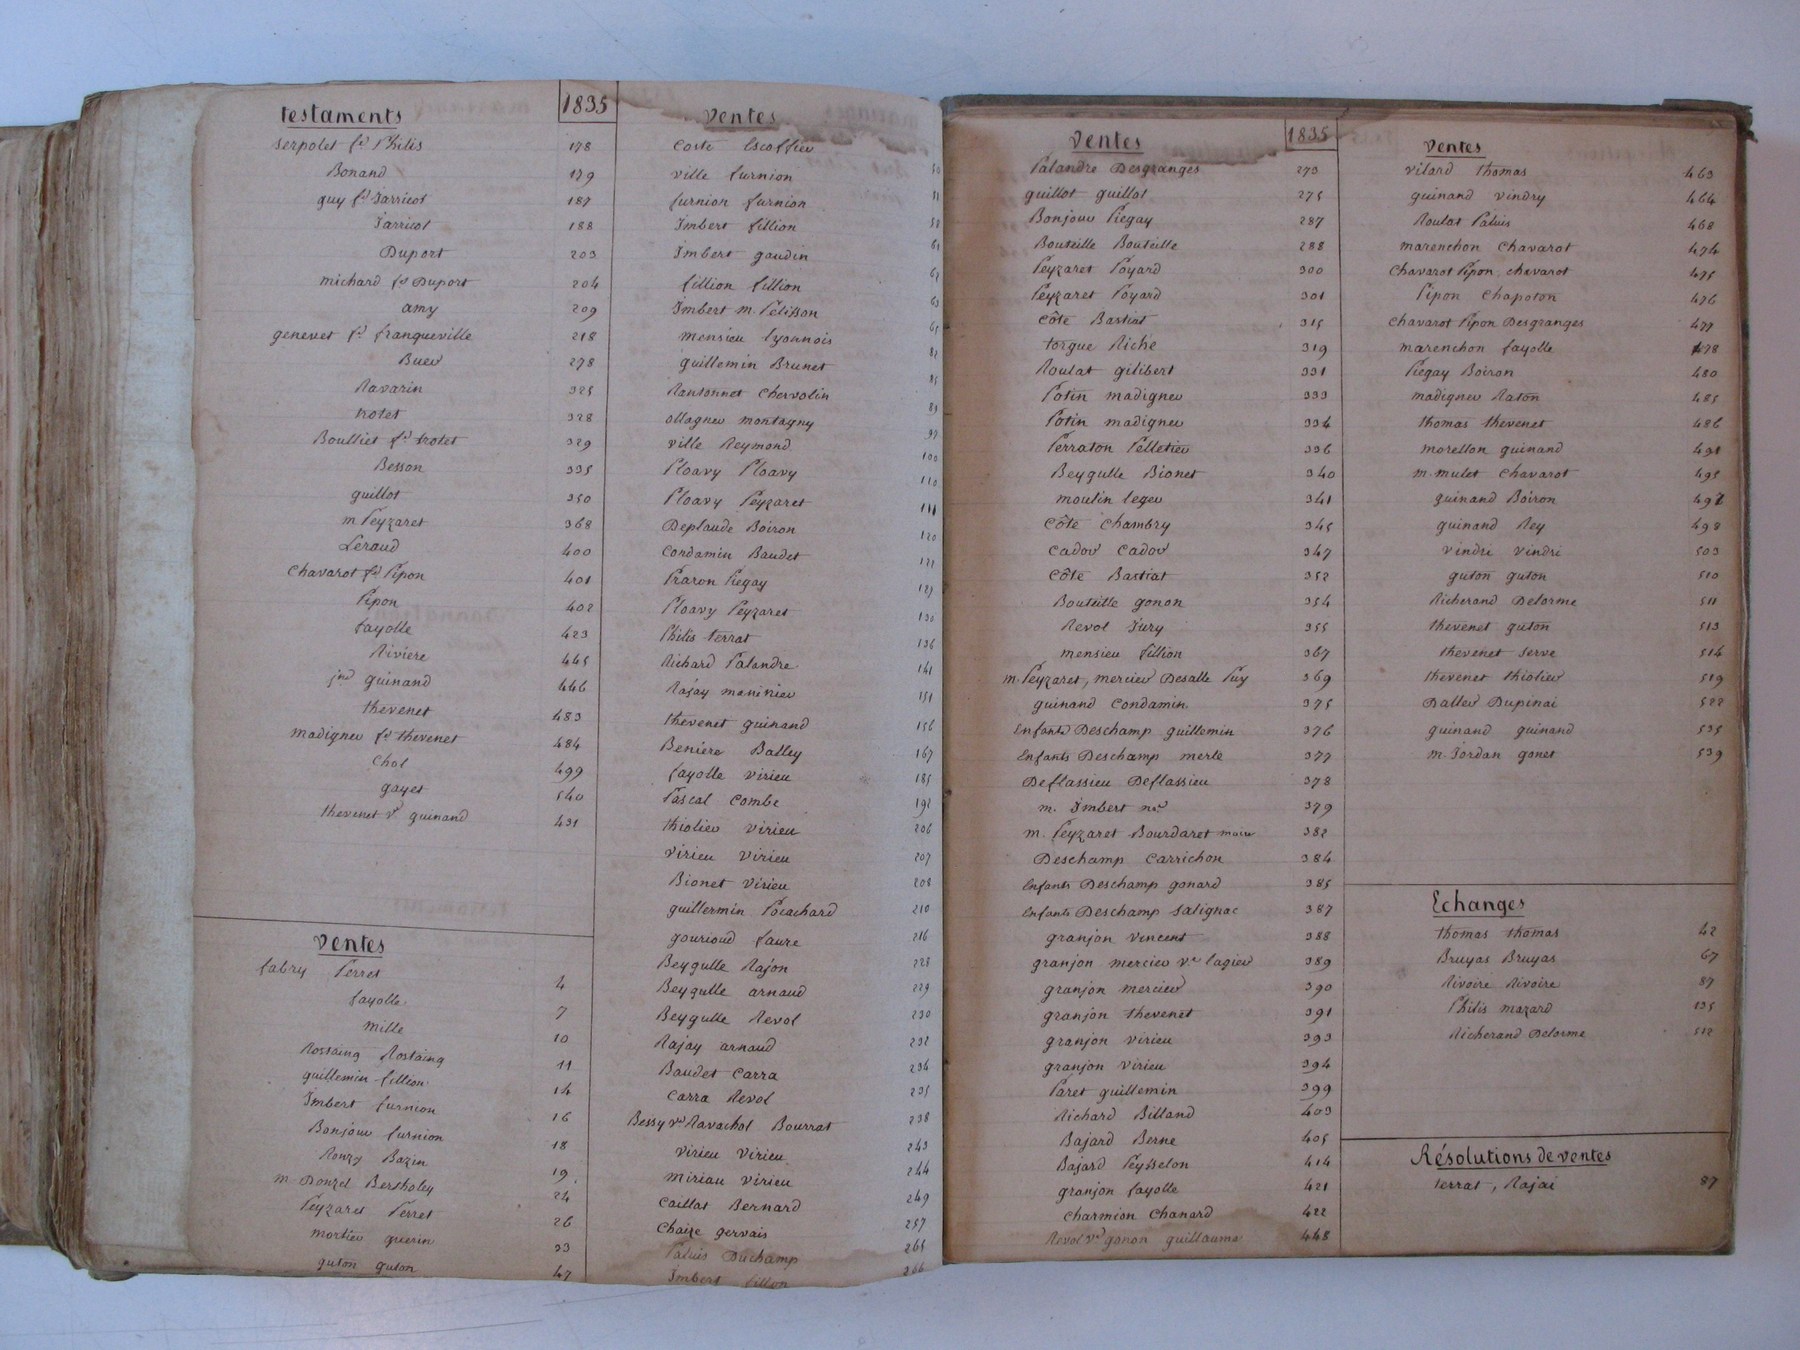 testaments
1835
serpolet fe Philis 178
Bonand 179
guy fe Jarricot 187
Jarricot 188
Duport 203
michard fe Duport 204
amy 209
genevet fe franqueville 218
Buer 278
Ravarin 325
trotet 328
Boulliet fe trotet 329
Besson 335
guillot 350
m. Peyzaret 368
Leraud 400
Chavarot fe Pipon 401
Pipon 402
fayolle 423
Rivière 445
jnd guinand 446
thevenet 483
madigner fe thevenet 484
Chol 499
gayet 540
thevenet ve guinand 431
Ventes
fabry Perret 4
fayolle 7
mille 10
Rostaing Rostaing 11
guillemin fillion 14
Imbert furnion 16
Bonjour furnion 18
Ronzy Bazin 19
m. Donzel Bertholey 24
Peyzaret Perret 26
mortier guerin 33
guton guton 47
Ventes
Coste Escoffier 50
ville furnion 51
furnion furnion 52
Imbert fillion 61
Imbert gaudin 62
fillion fillion 63
Imbert m. Pelisson 65
mensieu lyonnois 82
guillemin Brunet 85
Ransonnet Chervolin 89
ollagner montagny 97
ville Reymond 100
Ploavy Ploavy 110
Ploavy Peyzaret 111
Deplaude Boiron 120
Condamin Baudet 121
Praron Piegay 127
Ploavy Peyzaret 130
Philis terrat 136
Richard Palandre 141
Rajay menivier 151
thevenet guinand 156
Benière Balley 167
fayolle virieu 185
Pascal Combe 191
thiolier virieu 206
virieu virieu 207
Bionet virieu 208
guillermin Pocachard 210
gourioud faure 216
Beygulle Rajon 228
Beygulle arnaud 229
Beygulle Revol 230
Rajay arnaud 232
Baudet Carra 234
Carra Revol 235
Bessy ve Ravachol Bourrat 238
virieu virieu 243
miriau virieu 244
Caillat Bernard 249
Chaize gervais 257
Paluis Duchamp 265
Imbert fillon 266
Ventes
1835
Palandre Desgranges 273
guillot guillot 275
Bonjour Piegay 287
Bouteille Bouteille 288
Peyzaret Poyard 300
Peyzaret Poyard 301
Côte Bastiat 315
torgue Riche 319
Roulat gilibert 331
Potin madigner 333
Potin madigner 334
Perraton Pelletier 336
Beygulle Bionet 340
moulin leger 341
Côte Chambry 345
Cador Cador 347
Côte Bastiat 352
Bouteille gonon 354
Revol Jury 355
mensieu fillion 367
m. Peyzaret, mercier Desalle Puy 369
guinand Condamin 375
Enfants Deschamp guillemin 376
Enfants Deschamp merle 377
Deflassieu Deflassieu 378
m. Imbert nre 379
m. Peyzaret Bourdaret maire 382
Deschamp Carrichon 384
Enfants Deschamp gonard 385
Enfants Deschamp Salignac 387
granjon vincent 388
granjon mercier ve lagier 389
granjon mercier 390
granjon thevenet 391
granjon virieu 393
granjon virieu 394
Paret guillemin 399
Richard Billand 403
Bajard Berne 405
Bajard Peysselon 414
granjon fayolle 421
Charmion Chanard 422
Revol ve gonon guillaume 448
Ventes
vilard thomas 463
guinand vindry 464
Roulat Paluis 468
marenchon Chavarot 474
Chavarot Pipon, chavarot 475
Pipon Chapoton 476
Chavarot Pipon Desgranges 477
marenchon fayolle 478
Piegay Boiron 480
madigner Raton 485
thomas thevenet 486
morellon guinand 491
m. mulet Chavarot 495
guinand Boiron 497
guinand Rey 498
vindri vindri 503
guton guton 510
Richerand Delorme 511
thevenet guton 513
thevenet Serve 514
thevenet thiolier 519
Daller Dupinai 522
guinand guinand 535
m. Jordan gonet 539
Echanges
thomas thomas 42
Bruyas Bruyas 67
Rivoire Rivoire 87
Philis mazard 135
Richerand Delorme 512
Résolutions de ventes
terrat, Rajai 87